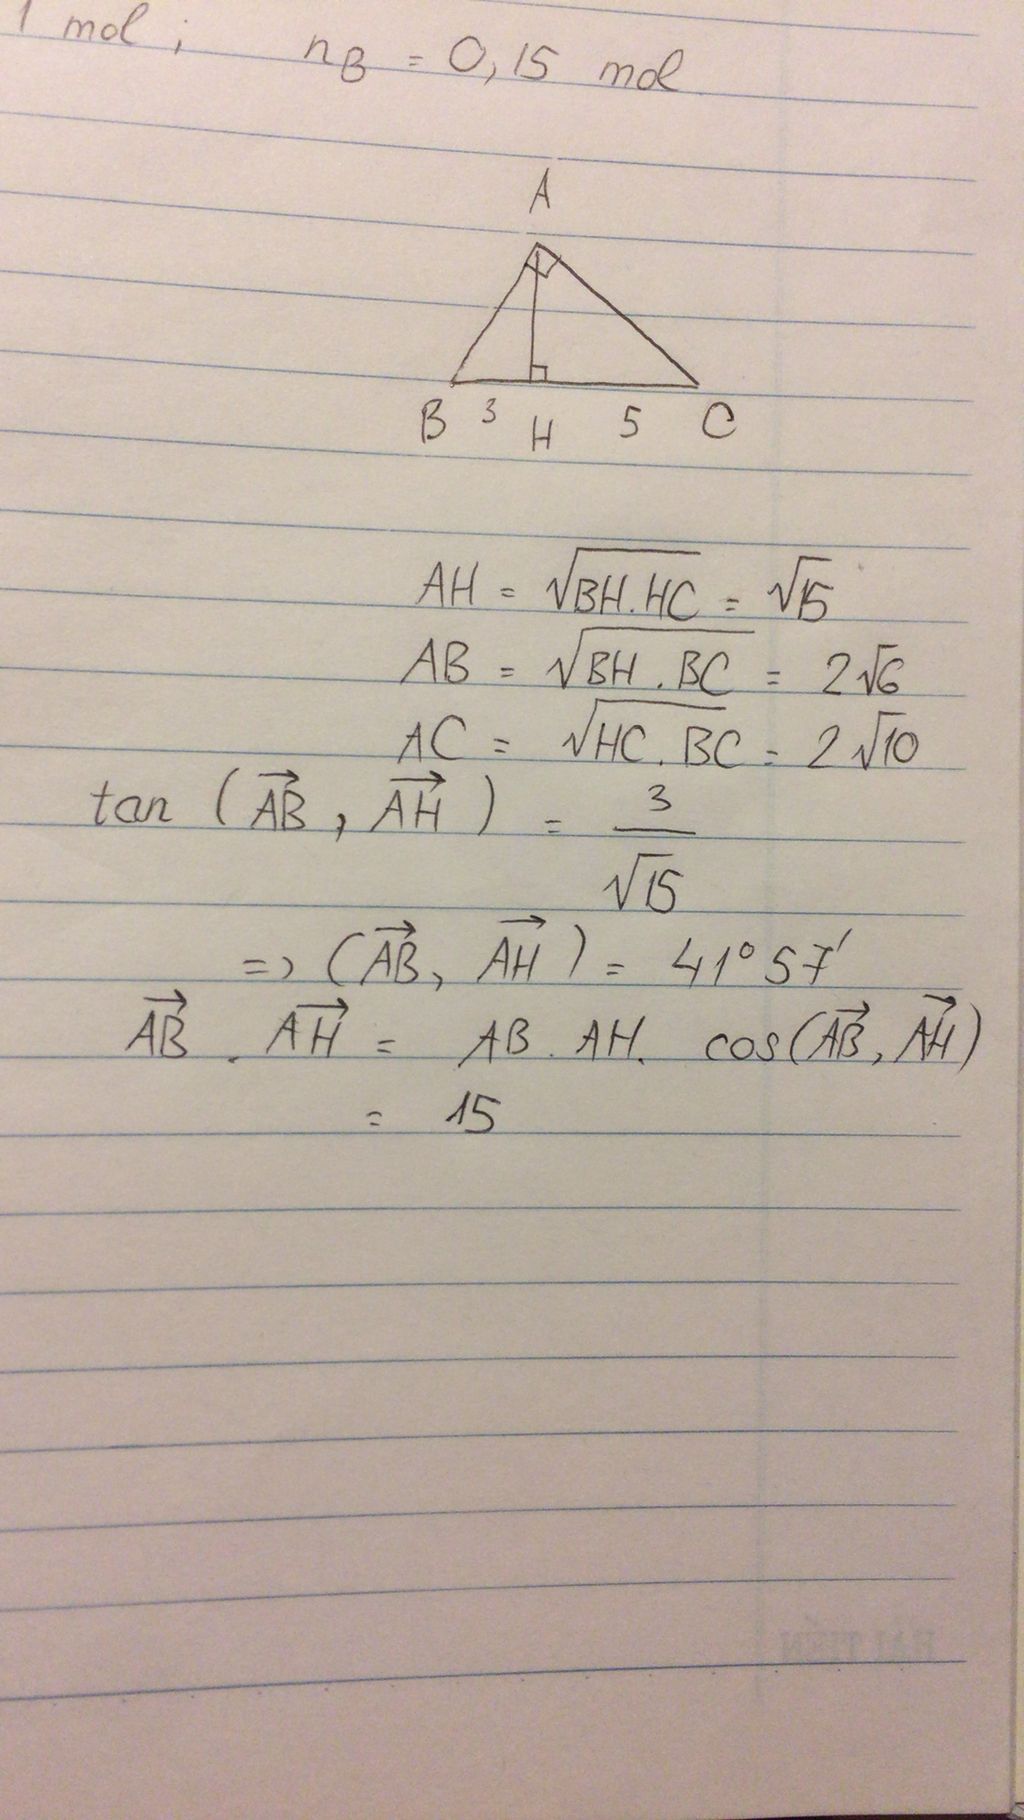 1 mol ; nB = 0,15 mol
A
B 3 H 5 C
AH = √BH.HC = √15
AB = √BH.BC = 2√6
AC = √HC.BC = 2√10
tan (AB→, AH→) = 3/√15
=> (AB→, AH→) = 41°57'
AB→ . AH→ = AB.AH. cos(AB→, AH→)
= 15
HẢI TIẾN